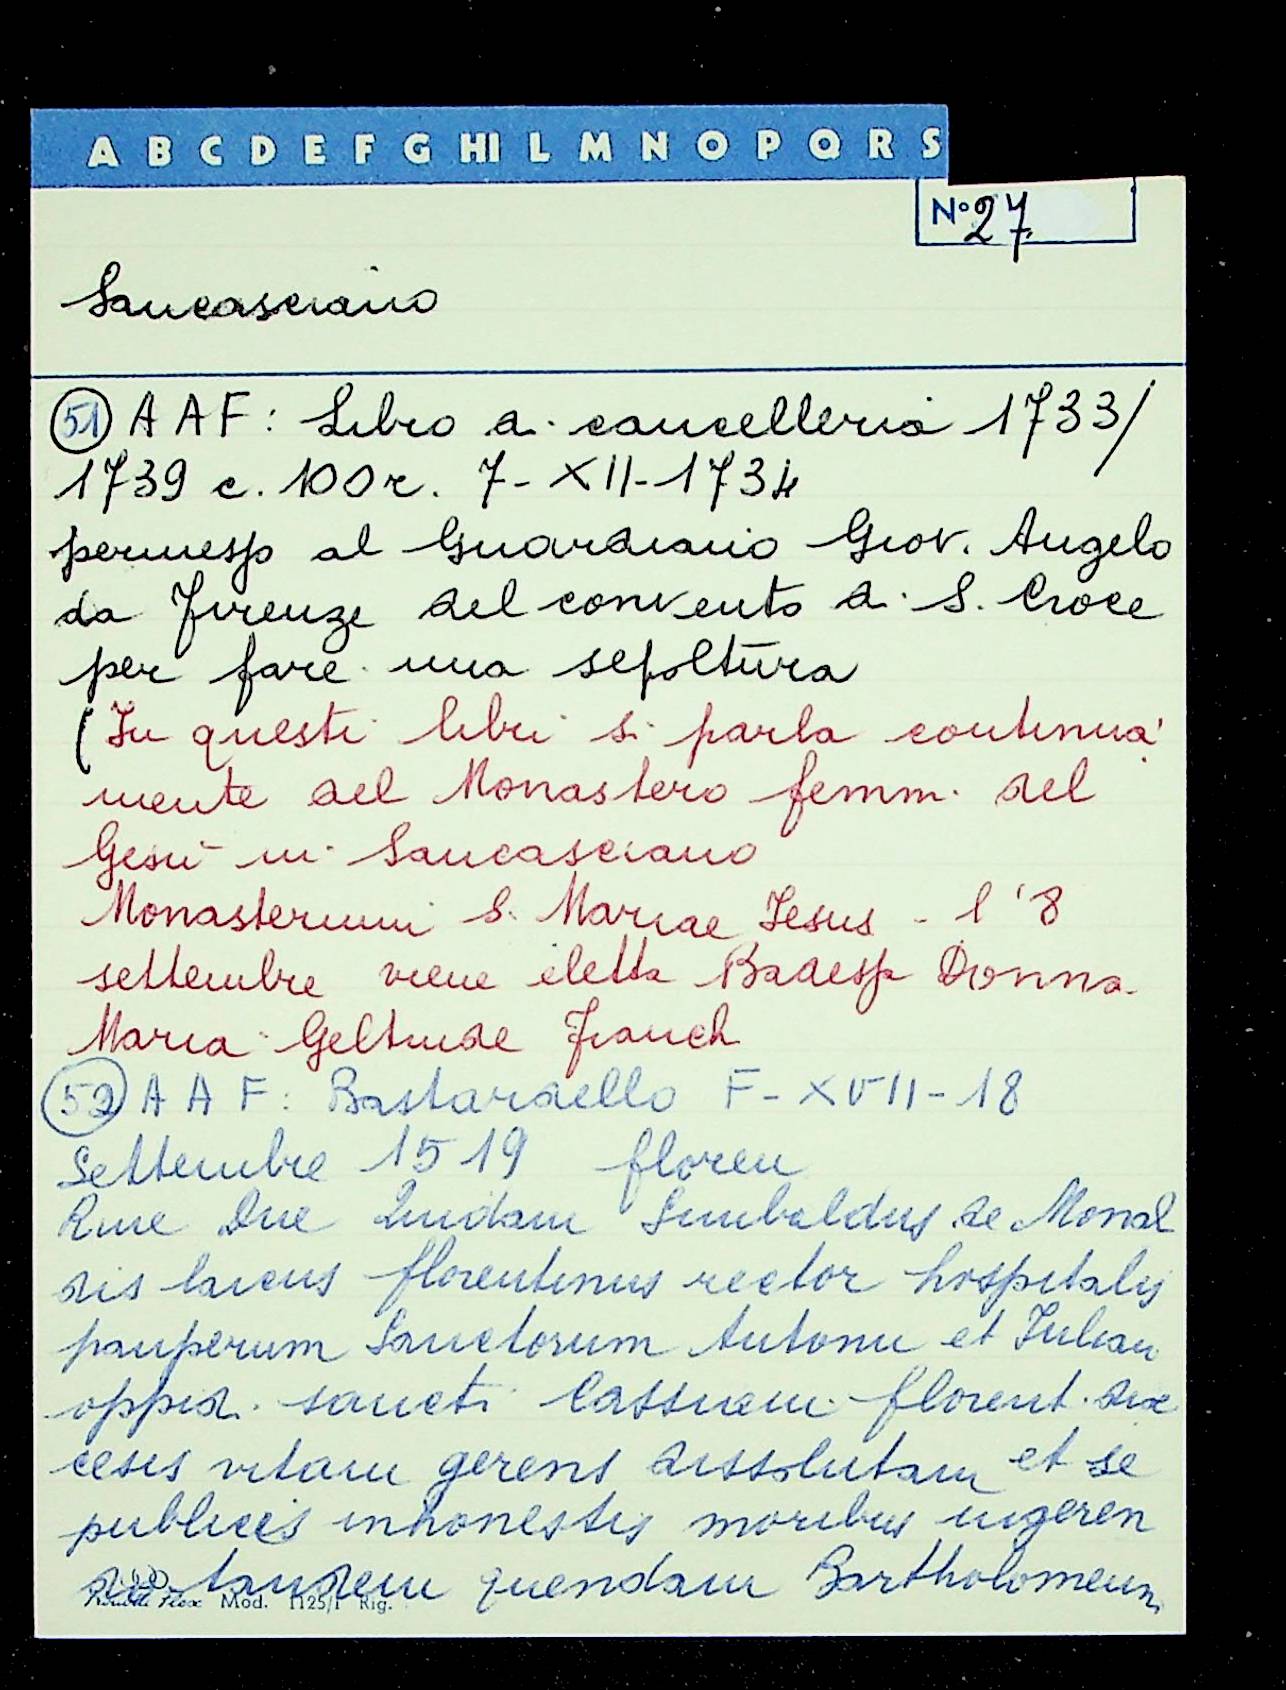 A B C D E F G HI L M N O P Q R S
N° 27
Sancasciano
51 A A F: Libro di cancelleria 1733/
1739 c. 100 r. 7-XII-1734
permesso al Guardiano Giov. Angelo
da Firenze del convento di S. Croce
per fare una sepoltura
(In questi libri si parla continua
mente del Monastero femm. del
Gesù in Sancasciano
Monasterium S. Mariae Jesus - l'8
settembre viene eletta Badessa Donna
Maria Geltrude Franch
52 A A F: Bastardello F-XVII-18
Settembre 1519 floren
Rme Dne Quidam Sinibaldus de Monal
dis laicus florentinus rector hospitalis
pauperum Sanctorum Antonii et Iulian
oppid. sancti Cassiem florent. dioe
cesis vitam gerens dissolutam et se
publicis inhonestis moribus ingeren
do tandem quendam Bartholomeum
Mod. 1125/1 Rig.